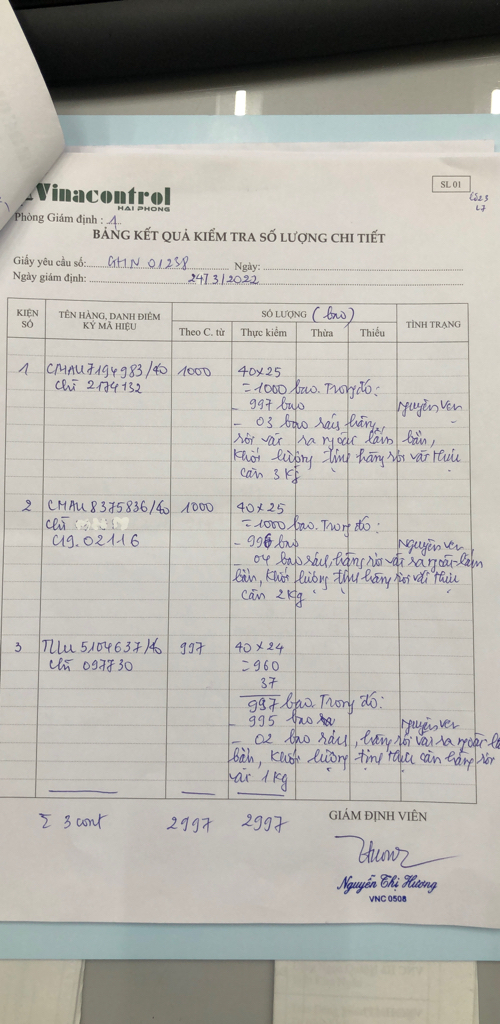 Vinacontrol
HAI PHONG
SL 01
Phòng Giám định : 1
BẢNG KẾT QUẢ KIỂM TRA SỐ LƯỢNG CHI TIẾT
Giấy yêu cầu số: 01238 Ngày:
Ngày giám định: 24/3/2022
KIỆN SỐ
TÊN HÀNG, DANH ĐIỂM KÝ MÃ HIỆU
SỐ LƯỢNG (bao)
TÌNH TRẠNG
Theo C. từ Thực kiểm Thừa Thiếu
1 CMAU7194983/40 1000 40×25
chì 2174132 =1000 bao. Trong đó:
- 997 bao nguyên vẹn
- 03 bao rách, hàng
rơi vãi ra ngoài lấm bẩn,
Khối lượng tịnh hàng rơi vãi thực
cân 3 kg
2 CMAU 8375836/40 1000 40×25
chì =1000 bao. Trong đó:
C19.02116 - 996 bao nguyên vẹn
- 04 bao rách, hàng rơi vãi ra ngoài lấm
bẩn, khối lượng tịnh hàng rơi vãi thực
cân 2 kg
3 5104637/40 997 40×24
chì 097730 =960
37
997 bao. Trong đó:
- 995 bao nguyên vẹn
- 02 bao rách, hàng rơi vãi ra ngoài
bẩn, khối lượng tịnh thực cân hàng rơi
vãi 1 kg
Σ 3 cont 2997 2997
GIÁM ĐỊNH VIÊN
Nguyễn Thị Hương
VNC 0508